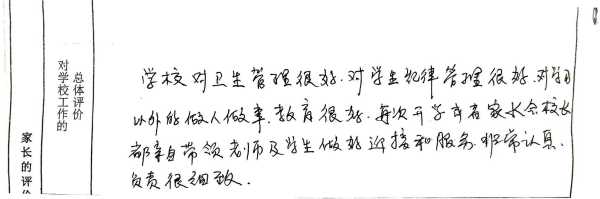 家长的评价
对学校工作的
总体评价
学校对卫生管理很好.对学生纪律管理很好.对学习
以外的做人做事.教育很好.每次开学或者家长会校长
都亲自带领老师及学生做好迎接和服务.非常认真.
负责很细致.